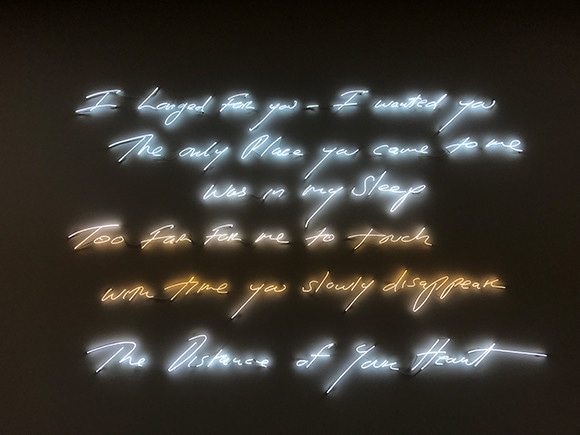 I Longed For you - I wanted you
The only Place you came to me
Was in my Sleep
Too Far For me to touch
with time you slowly disappear
The Distance of Your Heart